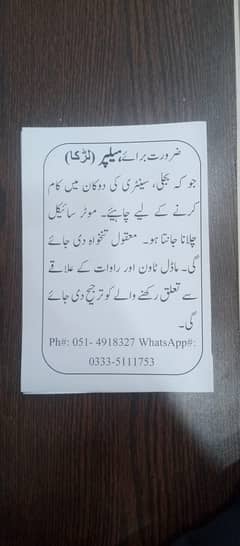 ضرورت برائے ہیلپر (لڑکا)
جو کہ بجلی، سینٹری کی دوکان میں کام
کرنے کے لیے چاہیے۔ موٹر سائیکل
چلانا جانتا ہو۔ معقول تنخواہ دی جائے
گی۔ ماڈل ٹاون اور راوات کے علاقے
سے تعلق رکھنے والے کو ترجیح دی جائے
گی۔
Ph#: 051- 4918327 WhatsApp#:
0333-5111753